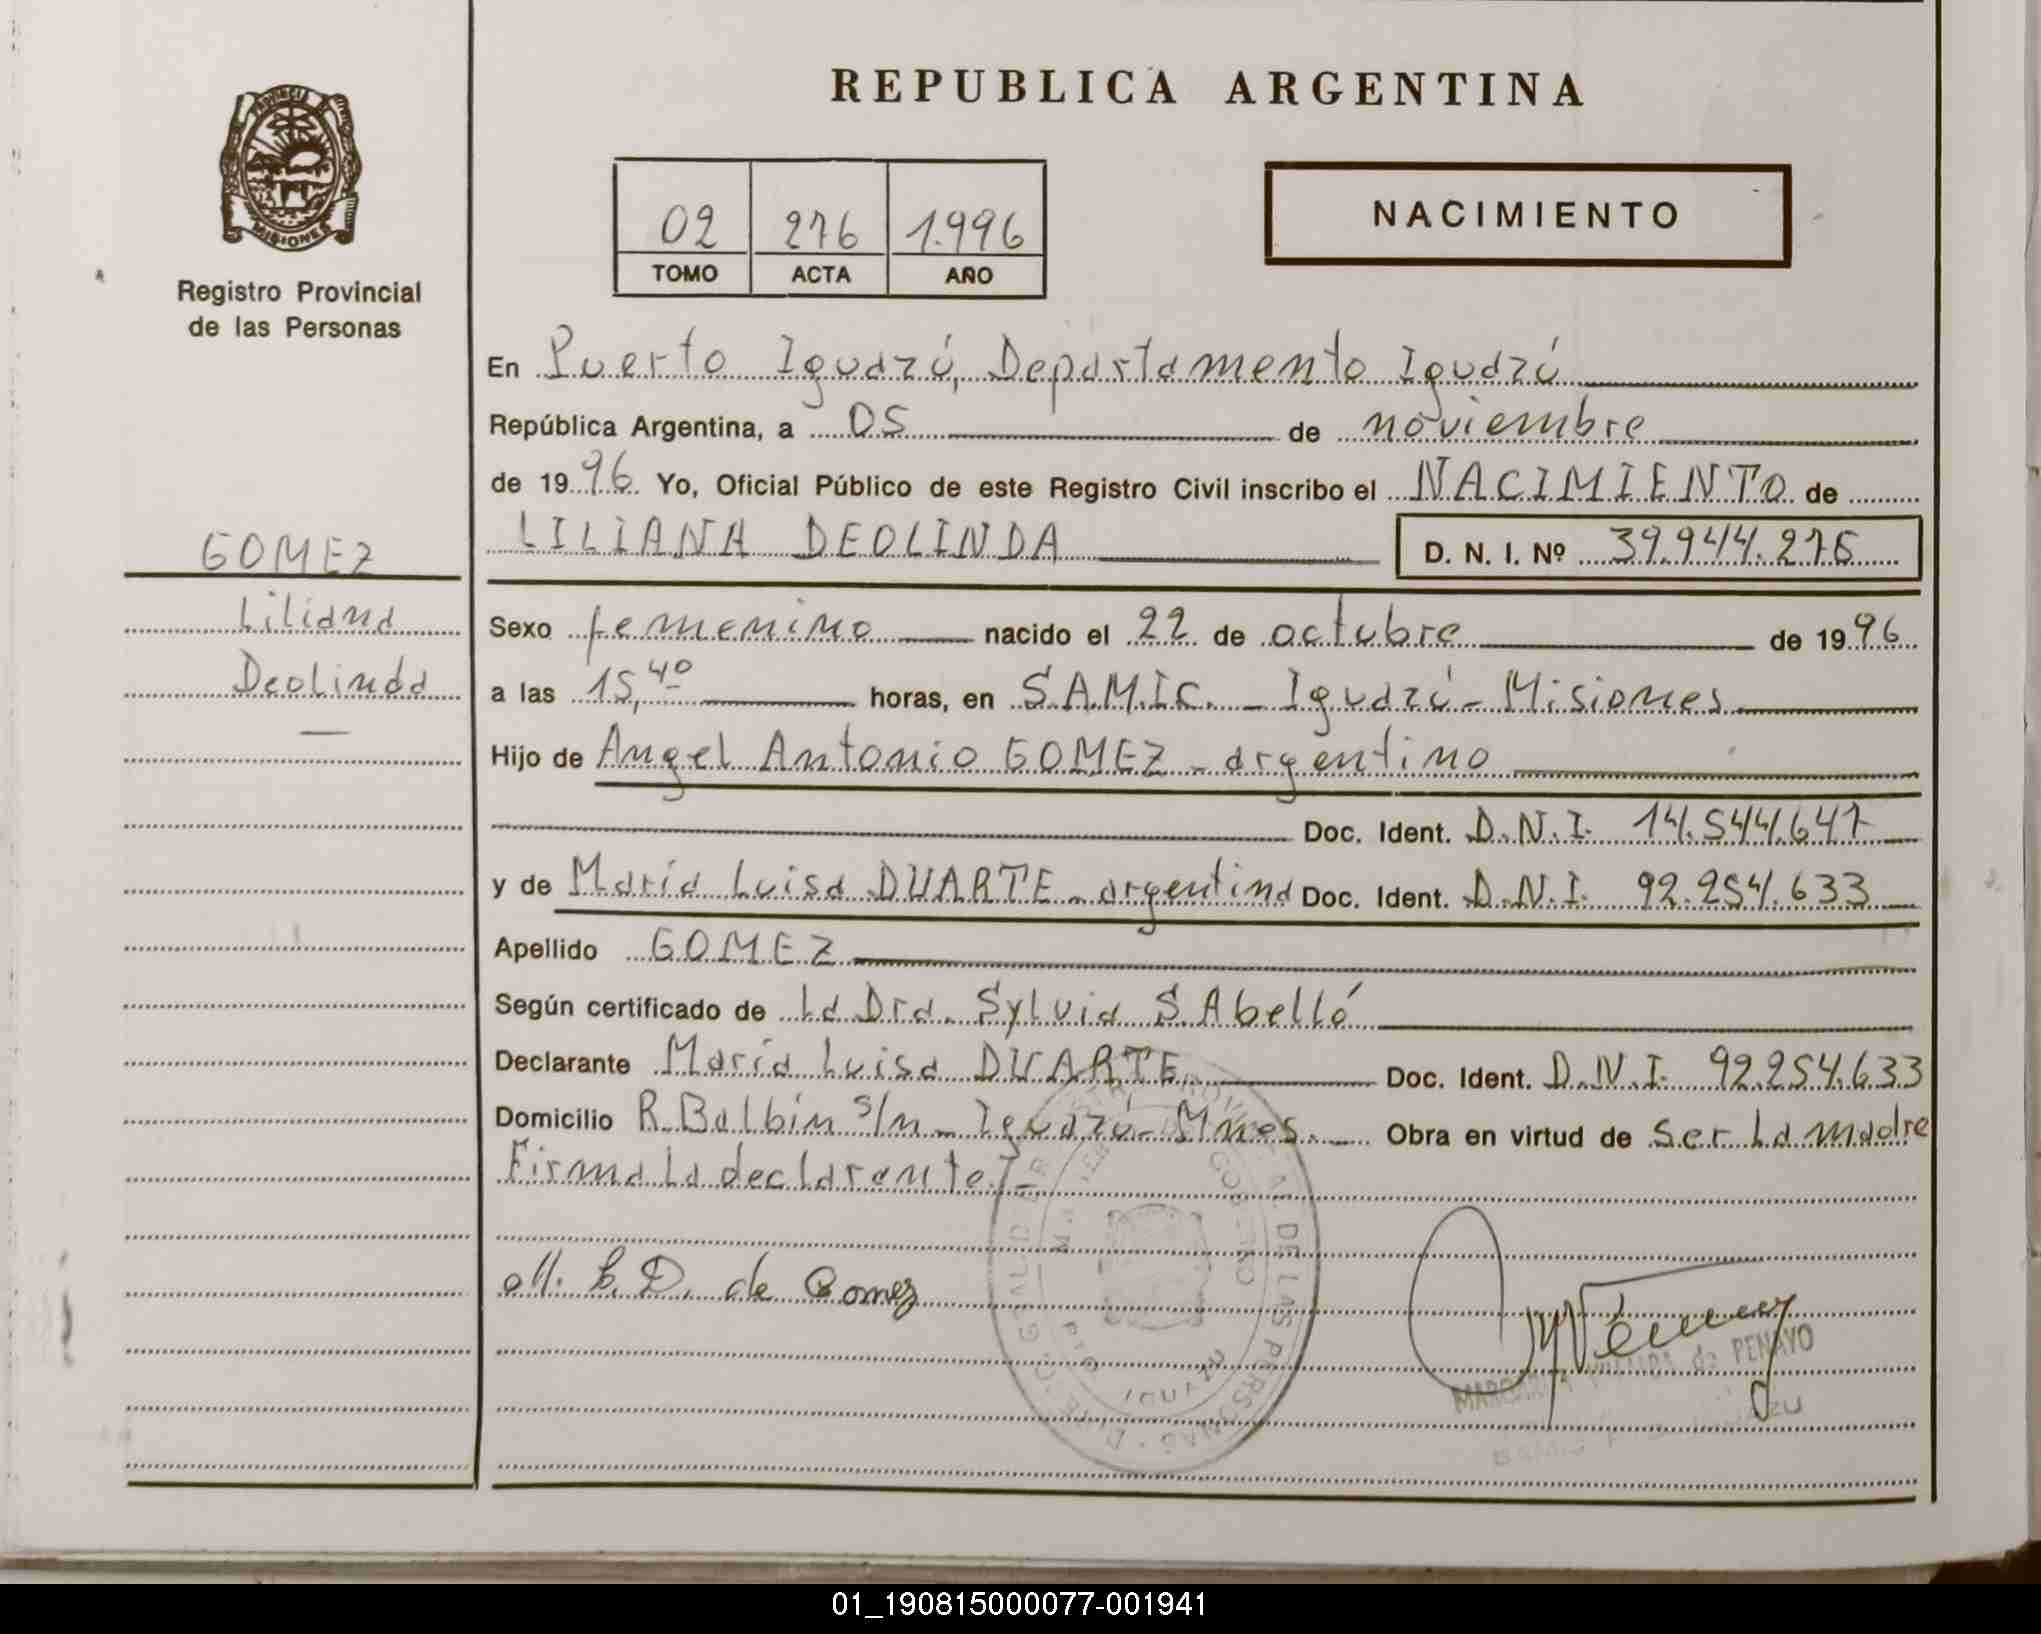 REPUBLICA ARGENTINA
PROVINCIA DE
MISIONES
Registro Provincial
de las Personas
02 276 1.996
TOMO ACTA AÑO
NACIMIENTO
En Puerto Iguazú, Departamento Iguazú
República Argentina, a 05 de noviembre
de 1996 Yo, Oficial Público de este Registro Civil inscribo el NACIMIENTO de
LILIANA DEOLINDA D. N. I. Nº 39.944.276
GOMEZ
Liliana
Deolinda
Sexo femenino nacido el 22 de octubre de 1996
a las 15,40 horas, en S.A.M.I.C. - Iguazú - Misiones
Hijo de Angel Antonio GOMEZ - argentino
Doc. Ident. D.N.I. 14.544.647
y de María Luisa DUARTE - argentina Doc. Ident. D.N.I. 92.254.633
Apellido GOMEZ
Según certificado de la Dra. Sylvia S. Abelló
Declarante María Luisa DUARTE Doc. Ident. D.N.I. 92.254.633
Domicilio R. Balbín s/n - Iguazú - Mnes. Obra en virtud de ser la madre
Firma la declarante/-
M. L. D. de Gomez
PROVINCIAL DE LAS PERSONAS
GOBIERNO
de PENAYO
01_190815000077-001941